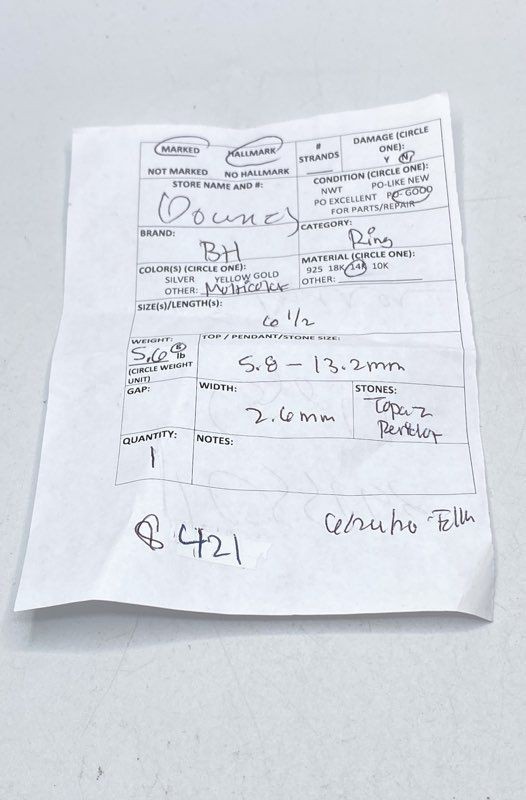 MARKED HALLMARK
NOT MARKED NO HALLMARK
# STRANDS
DAMAGE (CIRCLE ONE):
Y N
STORE NAME AND #:
CONDITION (CIRCLE ONE):
NWT PO-LIKE NEW
PO EXCELLENT PO- GOOD
FOR PARTS/REPAIR
BRAND:
BH
CATEGORY:
Ring
COLOR(S) (CIRCLE ONE):
SILVER YELLOW GOLD
OTHER: Multicolor
MATERIAL (CIRCLE ONE):
925 18K 14K 10K
OTHER:
SIZE(S)/LENGTH(S):
6 1/2
WEIGHT:
5.6 g
lb
(CIRCLE WEIGHT UNIT)
TOP / PENDANT/STONE SIZE:
5.8 - 13.2mm
GAP:
WIDTH:
2.6mm
STONES:
Topaz
Peridot
QUANTITY:
1
NOTES:
421